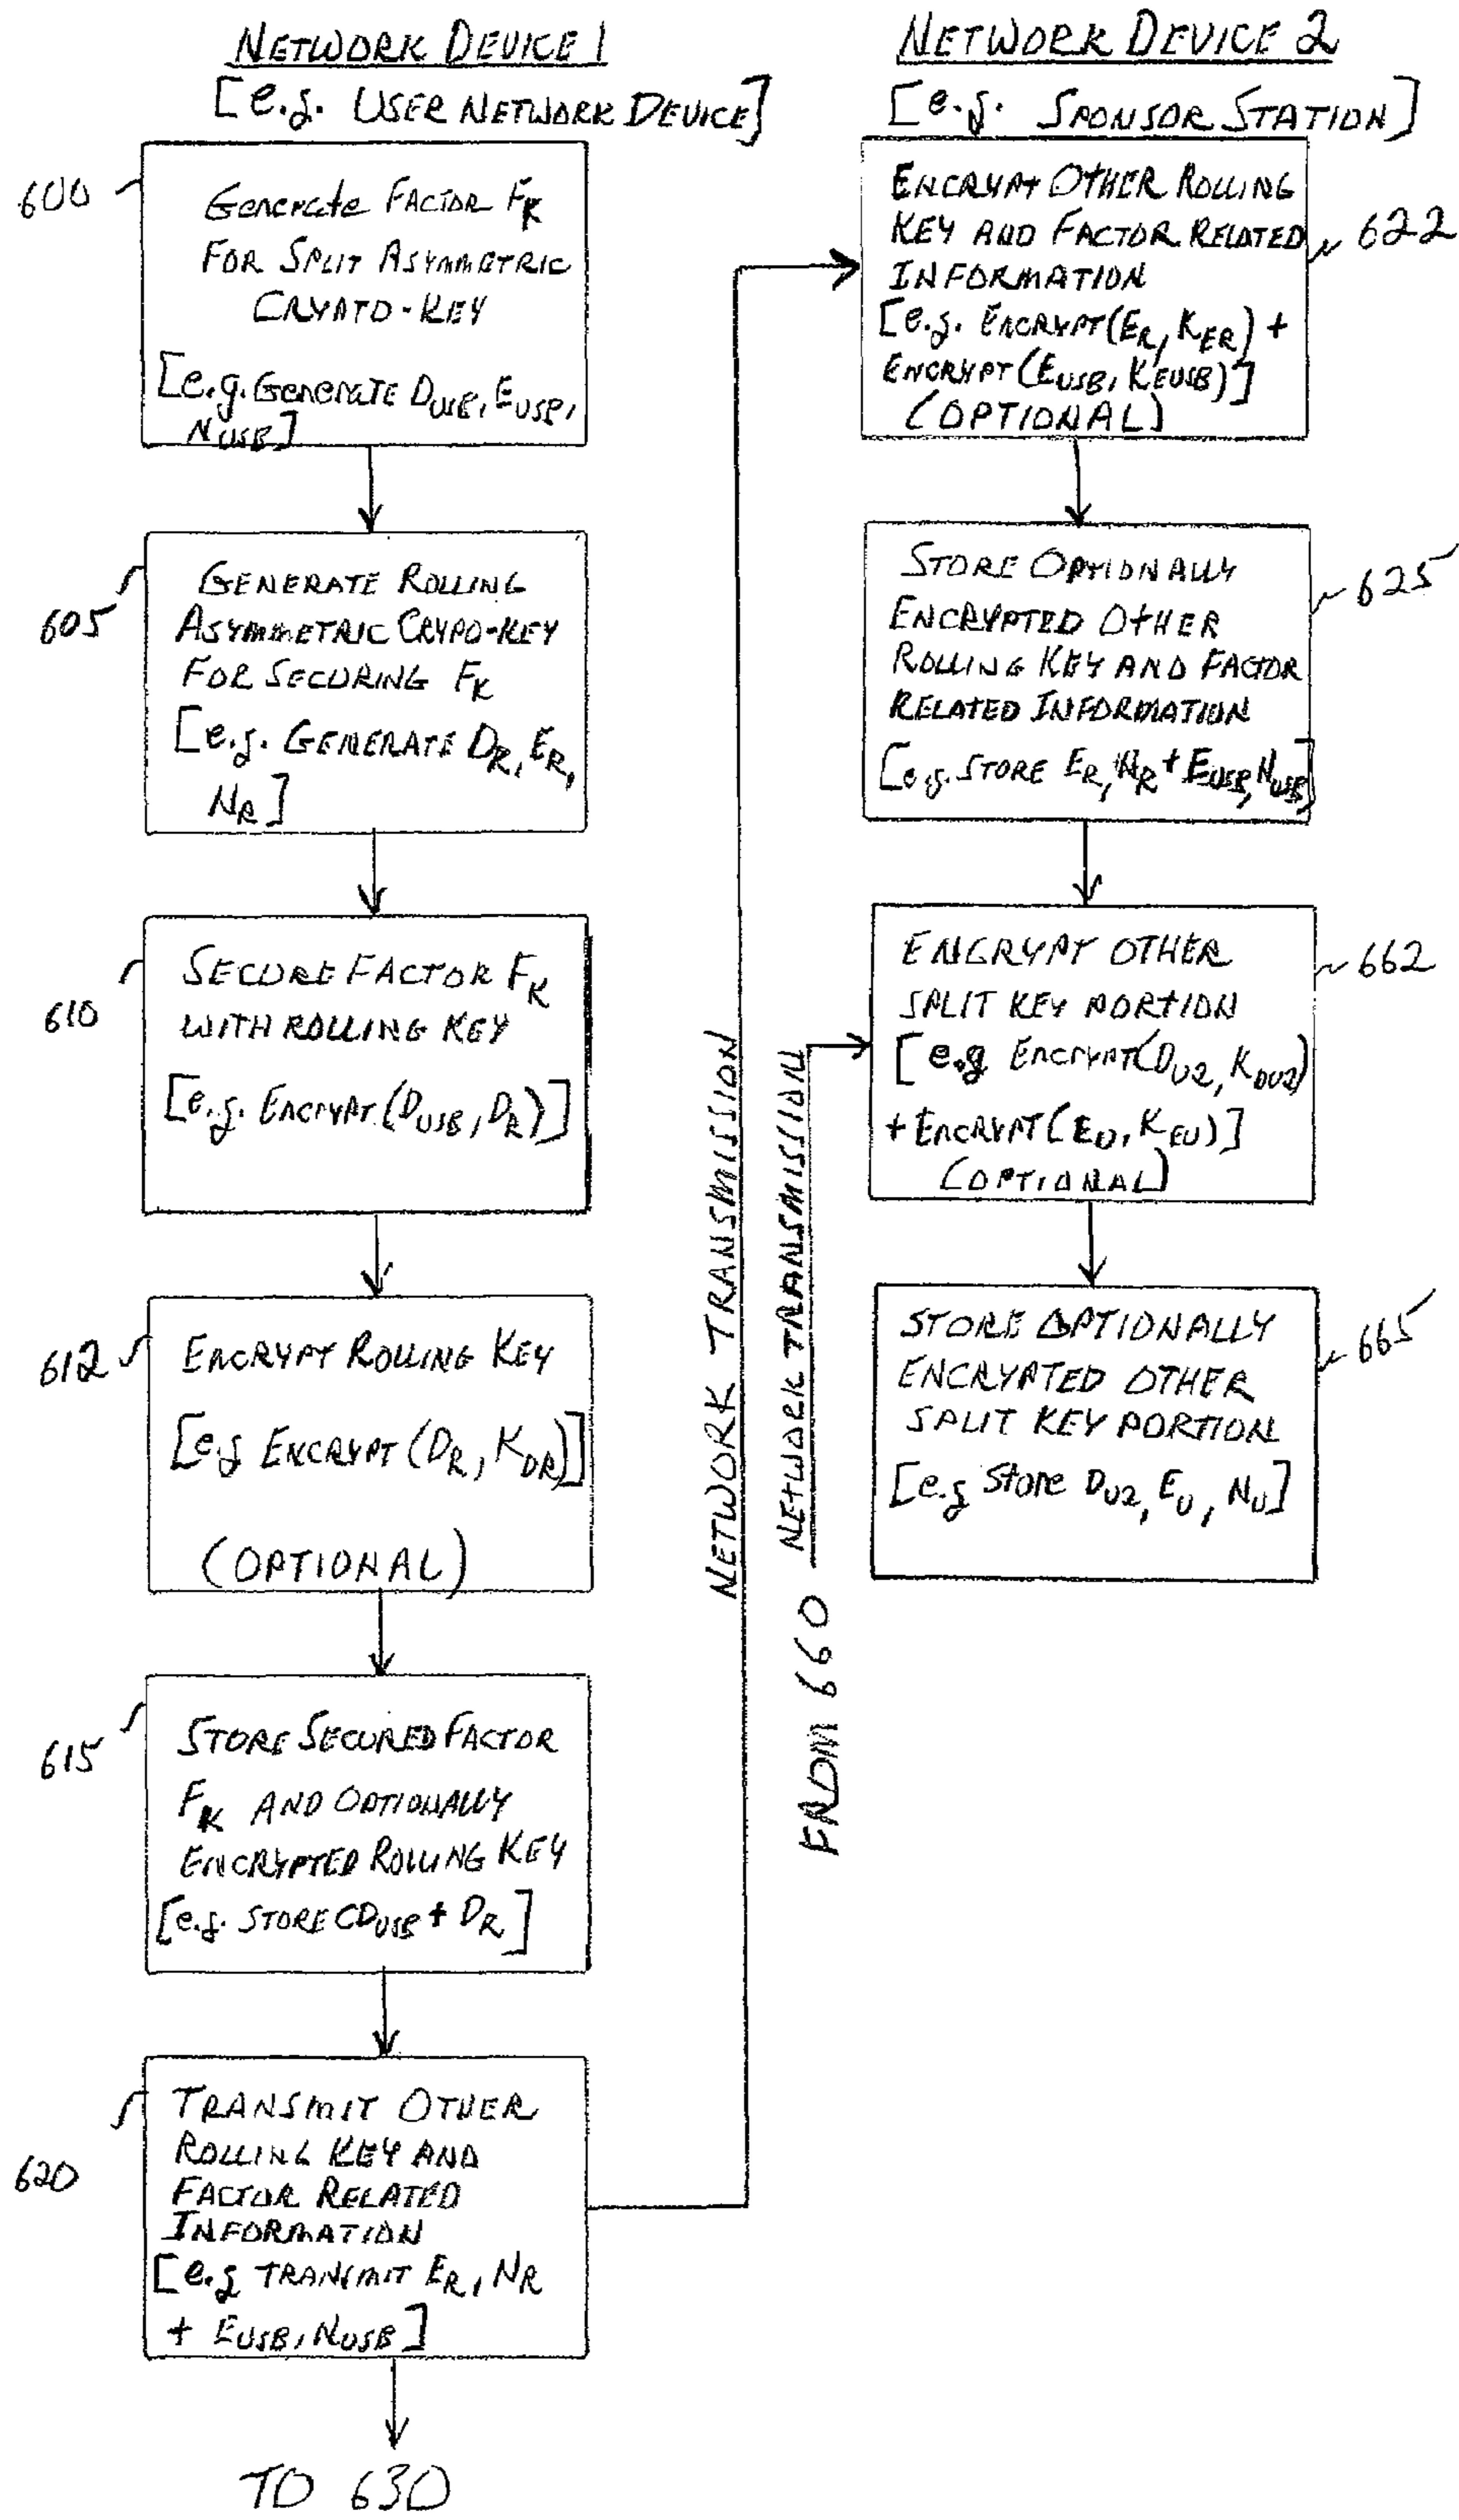 NETWORK DEVICE 1
[e.g. USER NETWORK DEVICE]
600
Generate FACTOR F_K
FOR SPLIT ASYMMETRIC
CRYPTO-KEY
[e.g. Generate D_USB, E_USB,
N_USB]
605
GENERATE ROLLING
ASYMMETRIC CRYPO-KEY
FOR SECURING F_K
[e.g. GENERATE D_R, E_R,
N_R]
610
SECURE FACTOR F_K
WITH ROLLING KEY
[e.g. ENCRYPT(D_USB, D_R)]
612
ENCRYPT ROLLING KEY
[e.g ENCRYPT(D_R, K_DR)]
(OPTIONAL)
615
STORE SECURED FACTOR
F_K AND OPTIONALLY
ENCRYPTED ROLLING KEY
[e.g. STORE CD_USB + D_R]
620
TRANSMIT OTHER
ROLLING KEY AND
FACTOR RELATED
INFORMATION
[e.g TRANSMIT E_R, N_R
+ E_USB, N_USB]
TO 630
NETWORK TRANSMISSION
FROM 660 NETWORK TRANSMISSION
NETWORK DEVICE 2
[e.g. SPONSOR STATION]
622
ENCRYPT OTHER ROLLING
KEY AND FACTOR RELATED
INFORMATION
[e.g. ENCRYPT(E_R, K_ER) +
ENCRYPT(E_USB, K_EUSB)]
(OPTIONAL)
625
STORE OPTIONALLY
ENCRYPTED OTHER
ROLLING KEY AND FACTOR
RELATED INFORMATION
[e.g. STORE E_R, N_R + E_USB, N_USB]
662
ENCRYPT OTHER
SPLIT KEY PORTION
[e.g ENCRYPT(D_U2, K_DU2)
+ ENCRYPT(E_U, K_EU)]
(OPTIONAL)
665
STORE OPTIONALLY
ENCRYPTED OTHER
SPLIT KEY PORTION
[e.g Store D_U2, E_U, N_U]